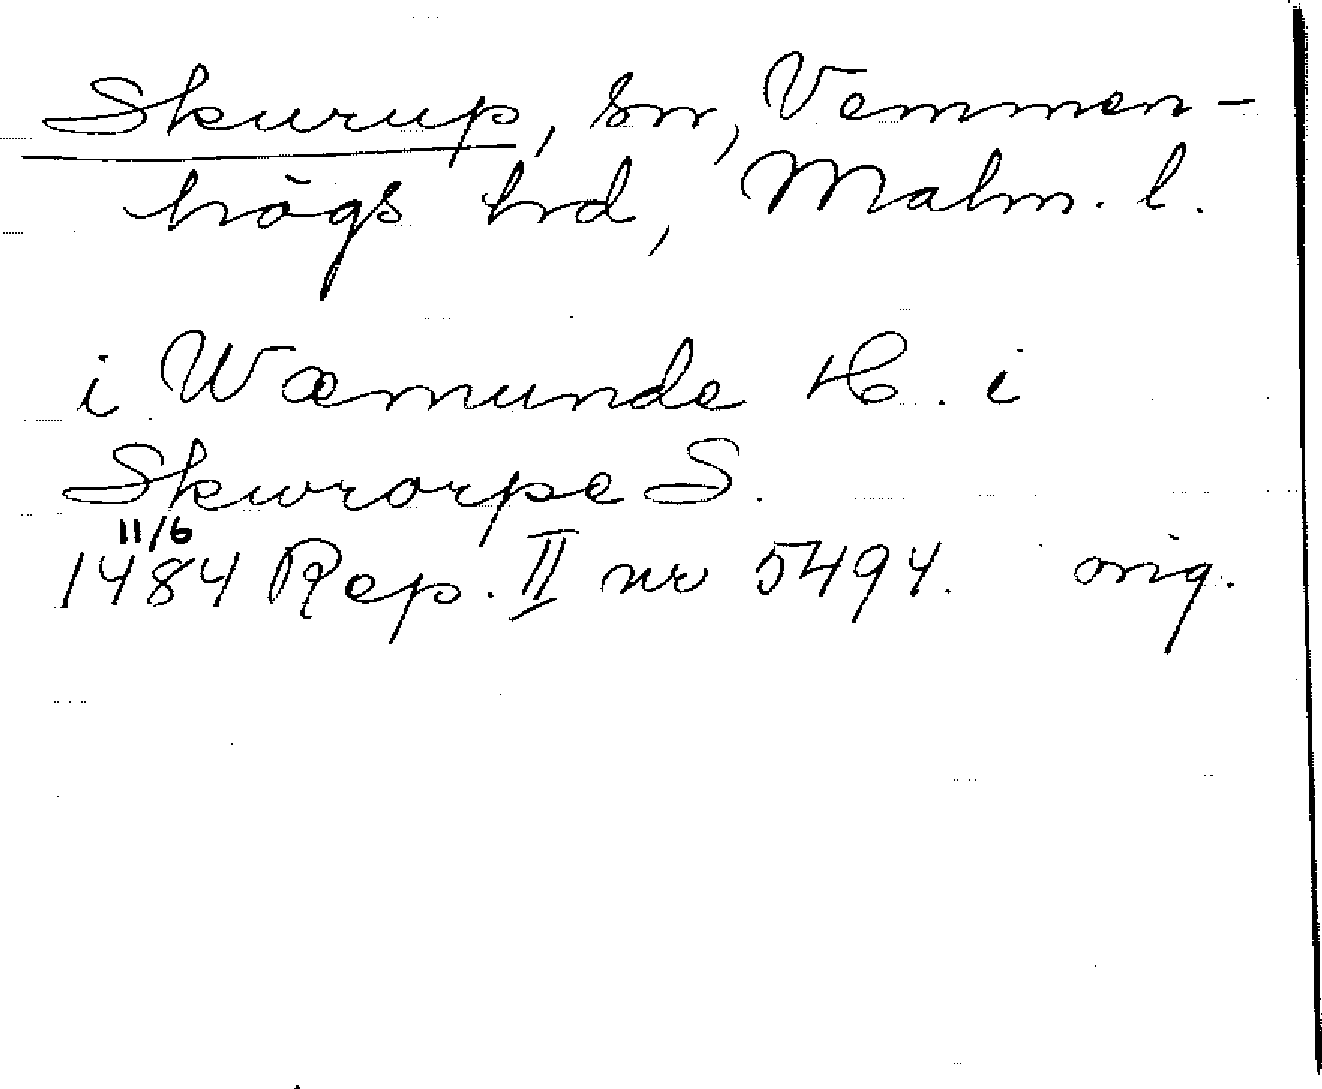 Skurup, sn, Vemmen-
högs hd, Malm. l.
i Wæmunde H. i
Skwrorpe S.
11/6
1484 Rep. II nr 5494. orig.